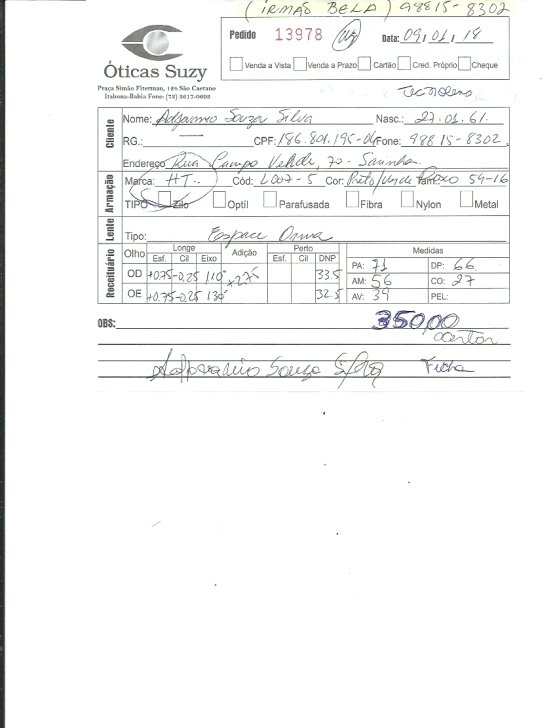 (IRMÃO BELA) 98815-8302
Pedido 13978 Data: 09/01/18
Venda a Vista Venda a Prazo Cartão Cred. Próprio Cheque
Óticas Suzy
Praça Simão Fiterman, 120 São Caetano
Itabuna-Bahia Fone: (73) 3617-0603
Tecnolens
Cliente
Nome: Souza Silva Nasc.: 27.01.61
RG.: CPF: 186.801.195-04 Fone: 98815-8302
Endereço Rua Campo Verde, 70 -
Armação
Marca: HT Cód: L007-5 Cor: Preto/ Tam.: 54-16
TIPO Zilo Optil Parafusada Fibra Nylon Metal
Lente
Tipo: Espace
Receituário
Olho Longe Adição Perto DNP Medidas
Esf. Cil Eixo Esf. Cil
OD +0.75 -0.25 110° +2.75 33.5 PA: 71 DP: 66
AM: 56 CO: 27
OE +0.75 -0.25 130° 32.5 AV: 39 PEL:
OBS: 350,00
cartão
Souza Silva Ficha